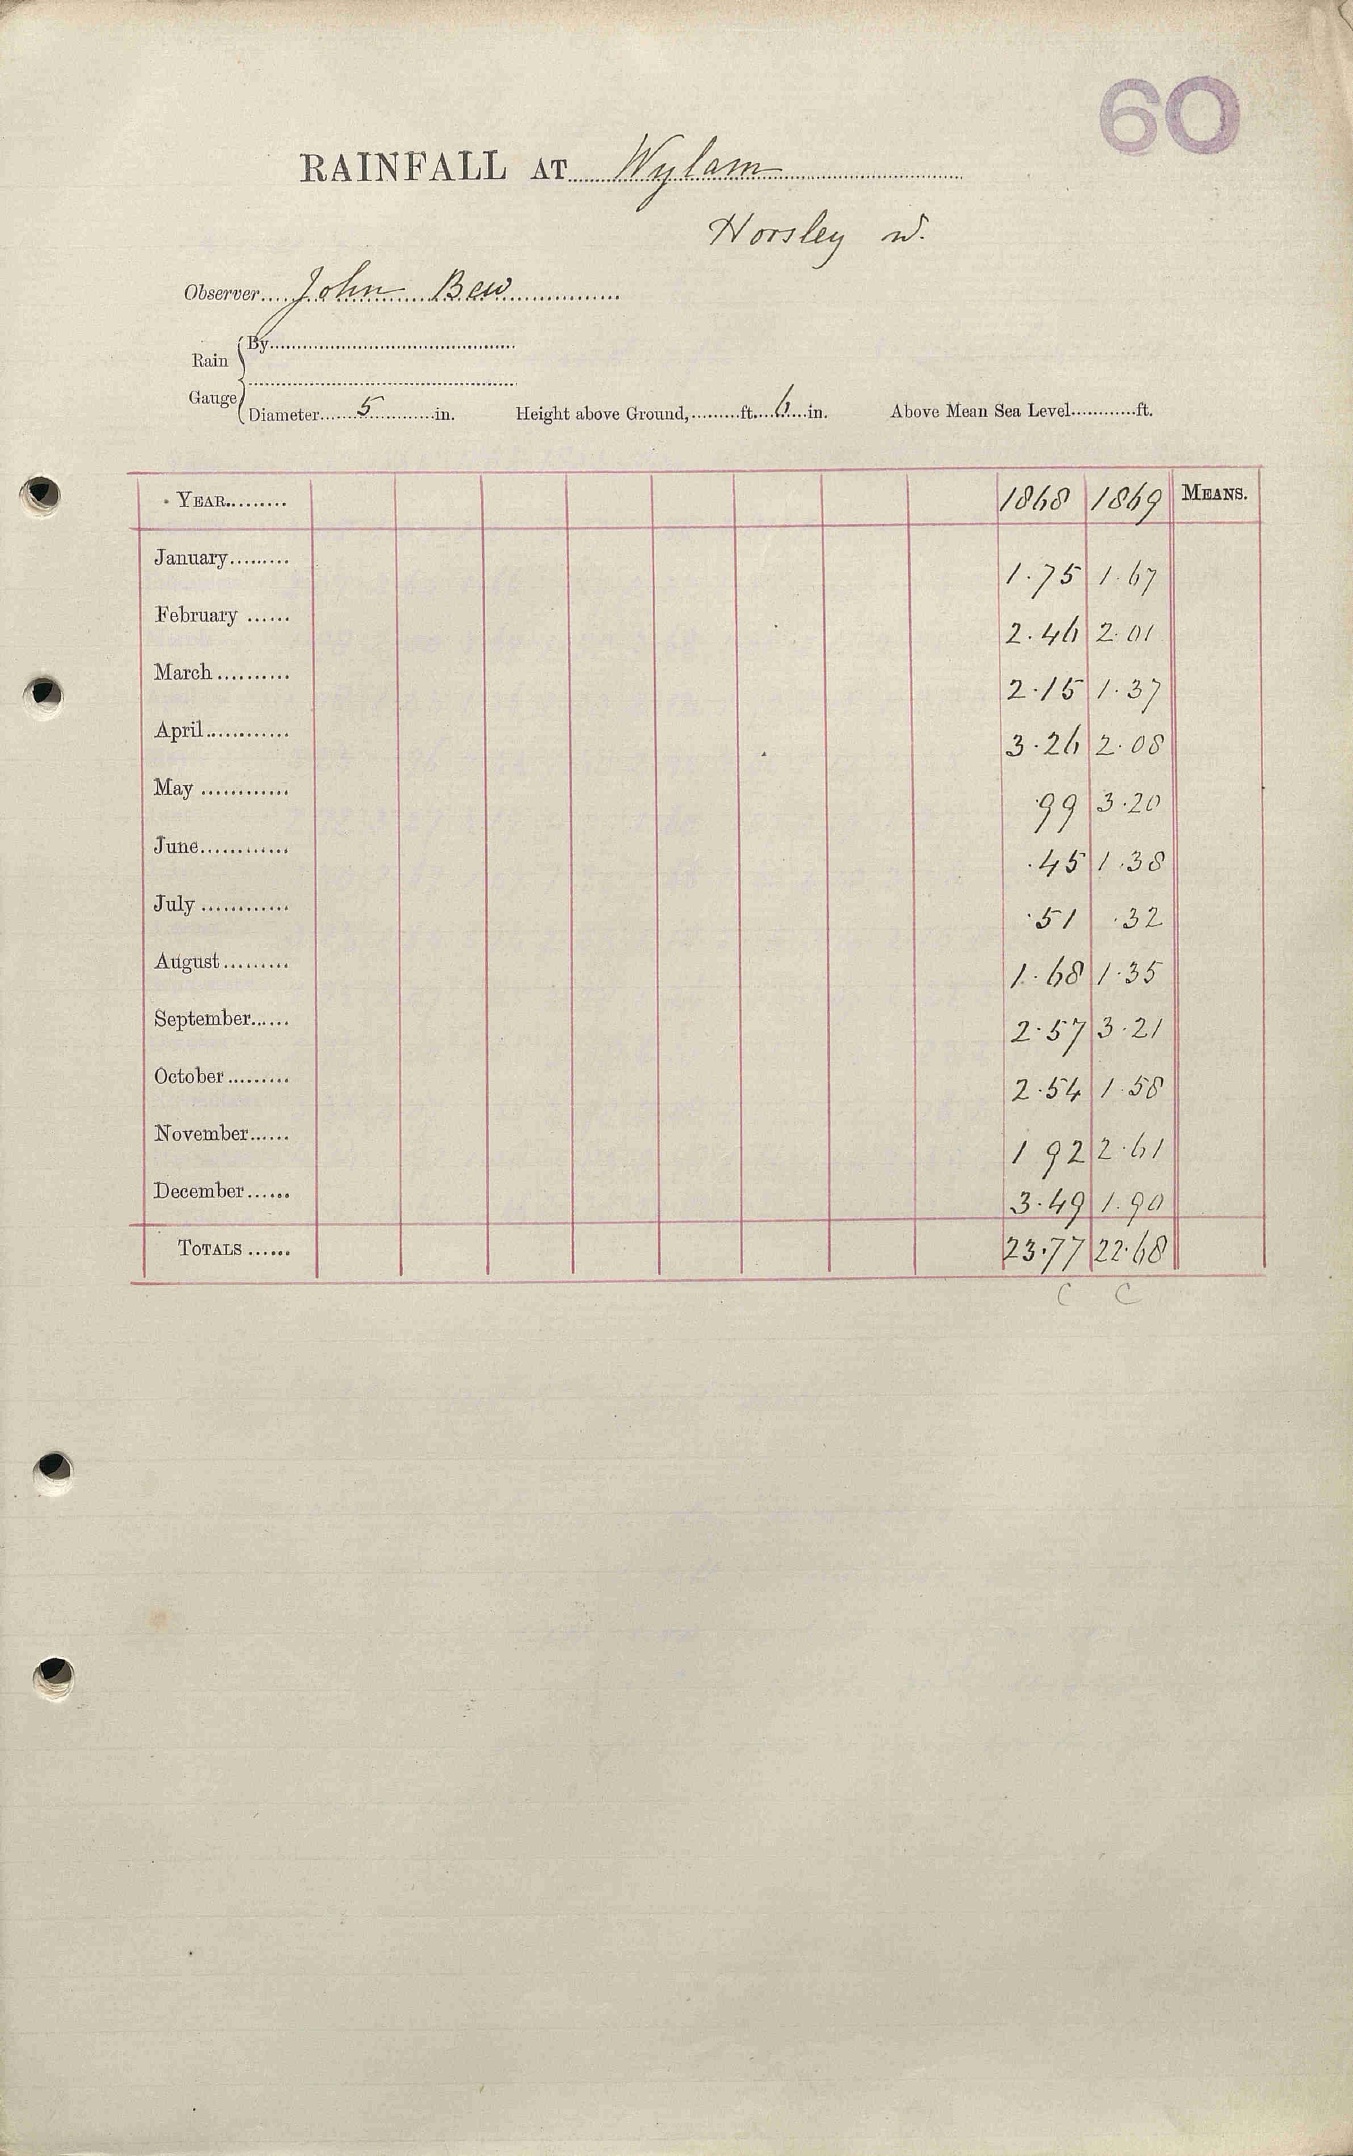 60
RAINFALL AT Wylam
Horsley W.
Observer John Bew
Rain Gauge
By
Diameter 5 in. Height above Ground, ft. 6 in. Above Mean Sea Level ft.
YEAR 1868 1869 MEANS.
January 1.75 1.67
February 2.46 2.01
March 2.15 1.37
April 3.26 2.08
May .99 3.20
June .45 1.38
July .51 .32
August 1.68 1.35
September 2.57 3.21
October 2.54 1.58
November 1 92 2.61
December 3.49 1.90
TOTALS 23.77 22.68
C C